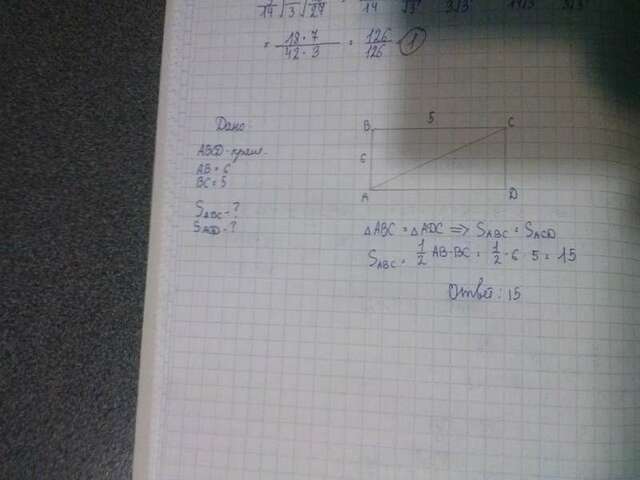 = 18·7 / 42·3 = 126 / 126 = 1
Дано
ABCD - прям.
AB = 6
BC = 5
S ABC - ?
S ACD - ?
B 5 C
6
A D
△ABC = △ADC => S ABC = S ACD
S ABC = 1/2 AB·BC = 1/2 · 6 · 5 = 15
Ответ: 15